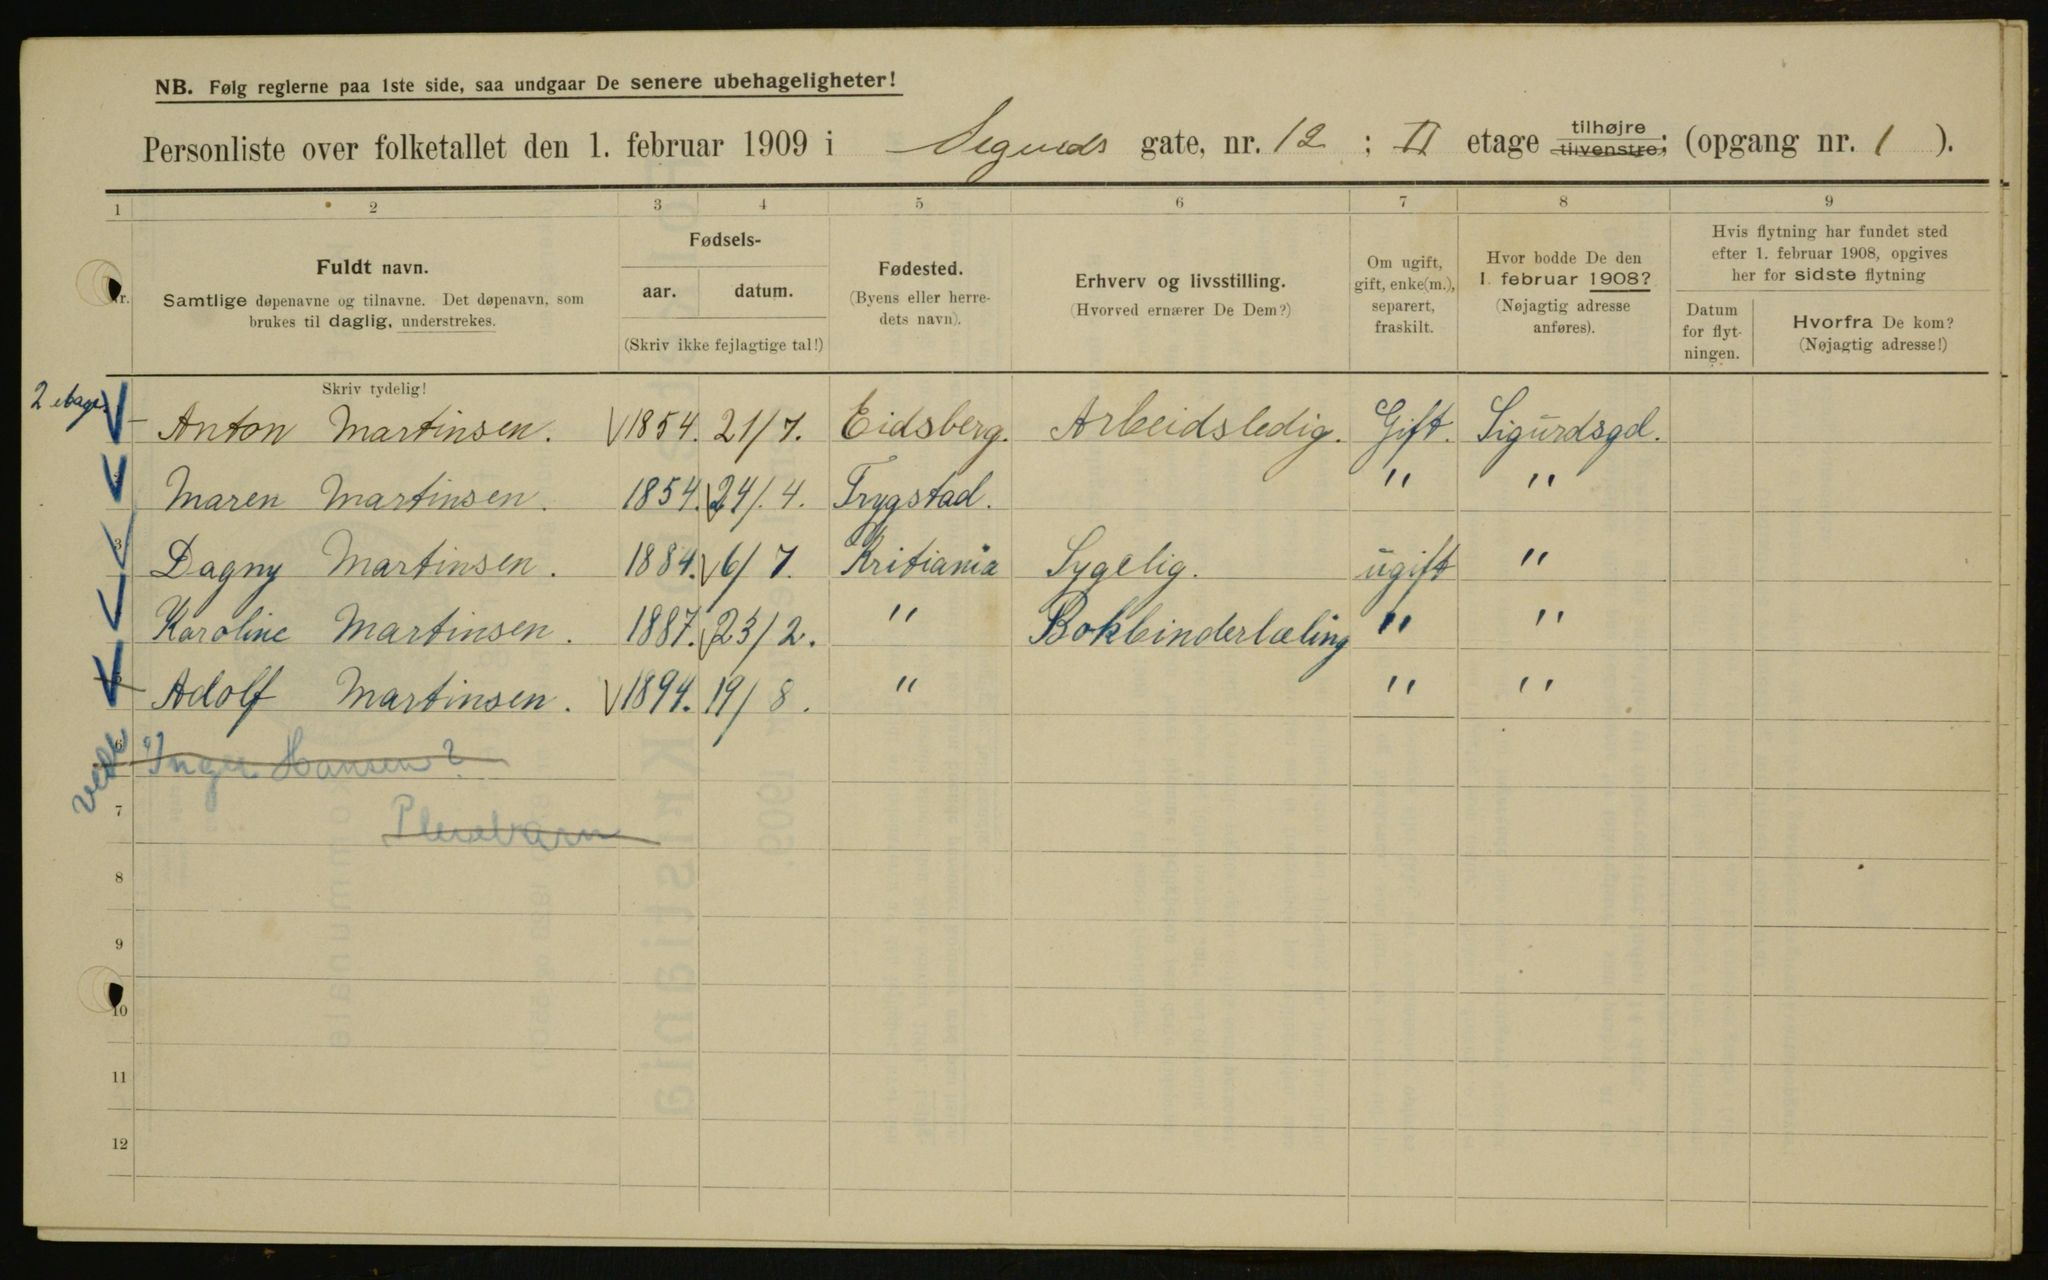 NB. Følg reglerne paa 1ste side, saa undgaar De senere ubehageligheter!
Personliste over folketallet den 1. februar 1909 i Sigurds gate, nr. 12 ; II etage tilhøjre tilvenstre; (opgang nr. 1 ).
1 2 3 4 5 6 7 8 9
Nr.
Fuldt navn.
Samtlige døpenavne og tilnavne. Det døpenavn, som
brukes til daglig, understrekes.
Skriv tydelig!
Fødsels-
aar. datum.
(Skriv ikke fejlagtige tal!)
Fødested.
(Byens eller herre-
dets navn).
Erhverv og livsstilling.
(Hvorved ernærer De Dem?)
Om ugift,
gift, enke(m.),
separert,
fraskilt.
Hvor bodde De den
1. februar 1908?
(Nøjagtig adresse
anføres).
Hvis flytning har fundet sted
efter 1. februar 1908, opgives
her for sidste flytning
Datum
for flyt-
ningen.
Hvorfra De kom?
(Nøjagtig adresse!)
2 etage.
Anton Martinsen. 1854. 21/7. Eidsberg. Arbeidsledig. Gift. Sigurdsgd.
Maren Martinsen. 1854. 24/4. Trygstad. " "
3 Dagny Martinsen. 1884. 6/7. Kritiania Sygelig. ugift "
Karoline Martinsen. 1887. 23/2. " Bokbinderlæling " "
Adolf Martinsen. 1894. 19/8. " " "
6 Inger Hansen?
7
Pleiebarn
8
9
10
11
12